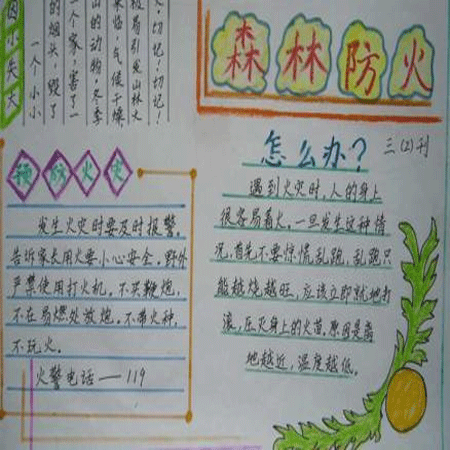 因小失大
一个小小
的烟头，毁了
一个家，害了一
山的动物，冬季
来临，气候干燥，
极易引发山林火
灾，切记！切记！
森林防火
怎么办？
三（2）刊
预防火灾
遇到火灾时，人的身上
很容易着火。一旦发生这种情
况，首先不要惊慌乱跑，乱跑只
能越烧越旺，应该立即就地打
滚，压灭身上的火苗，原因是离
地越近，温度越低。
发生火灾时要及时报警。
告诉家长用火要小心安全。野外
严禁使用打火机。不买鞭炮，
不在易燃处放炮。不带火种，
不玩火。
火警电话——119